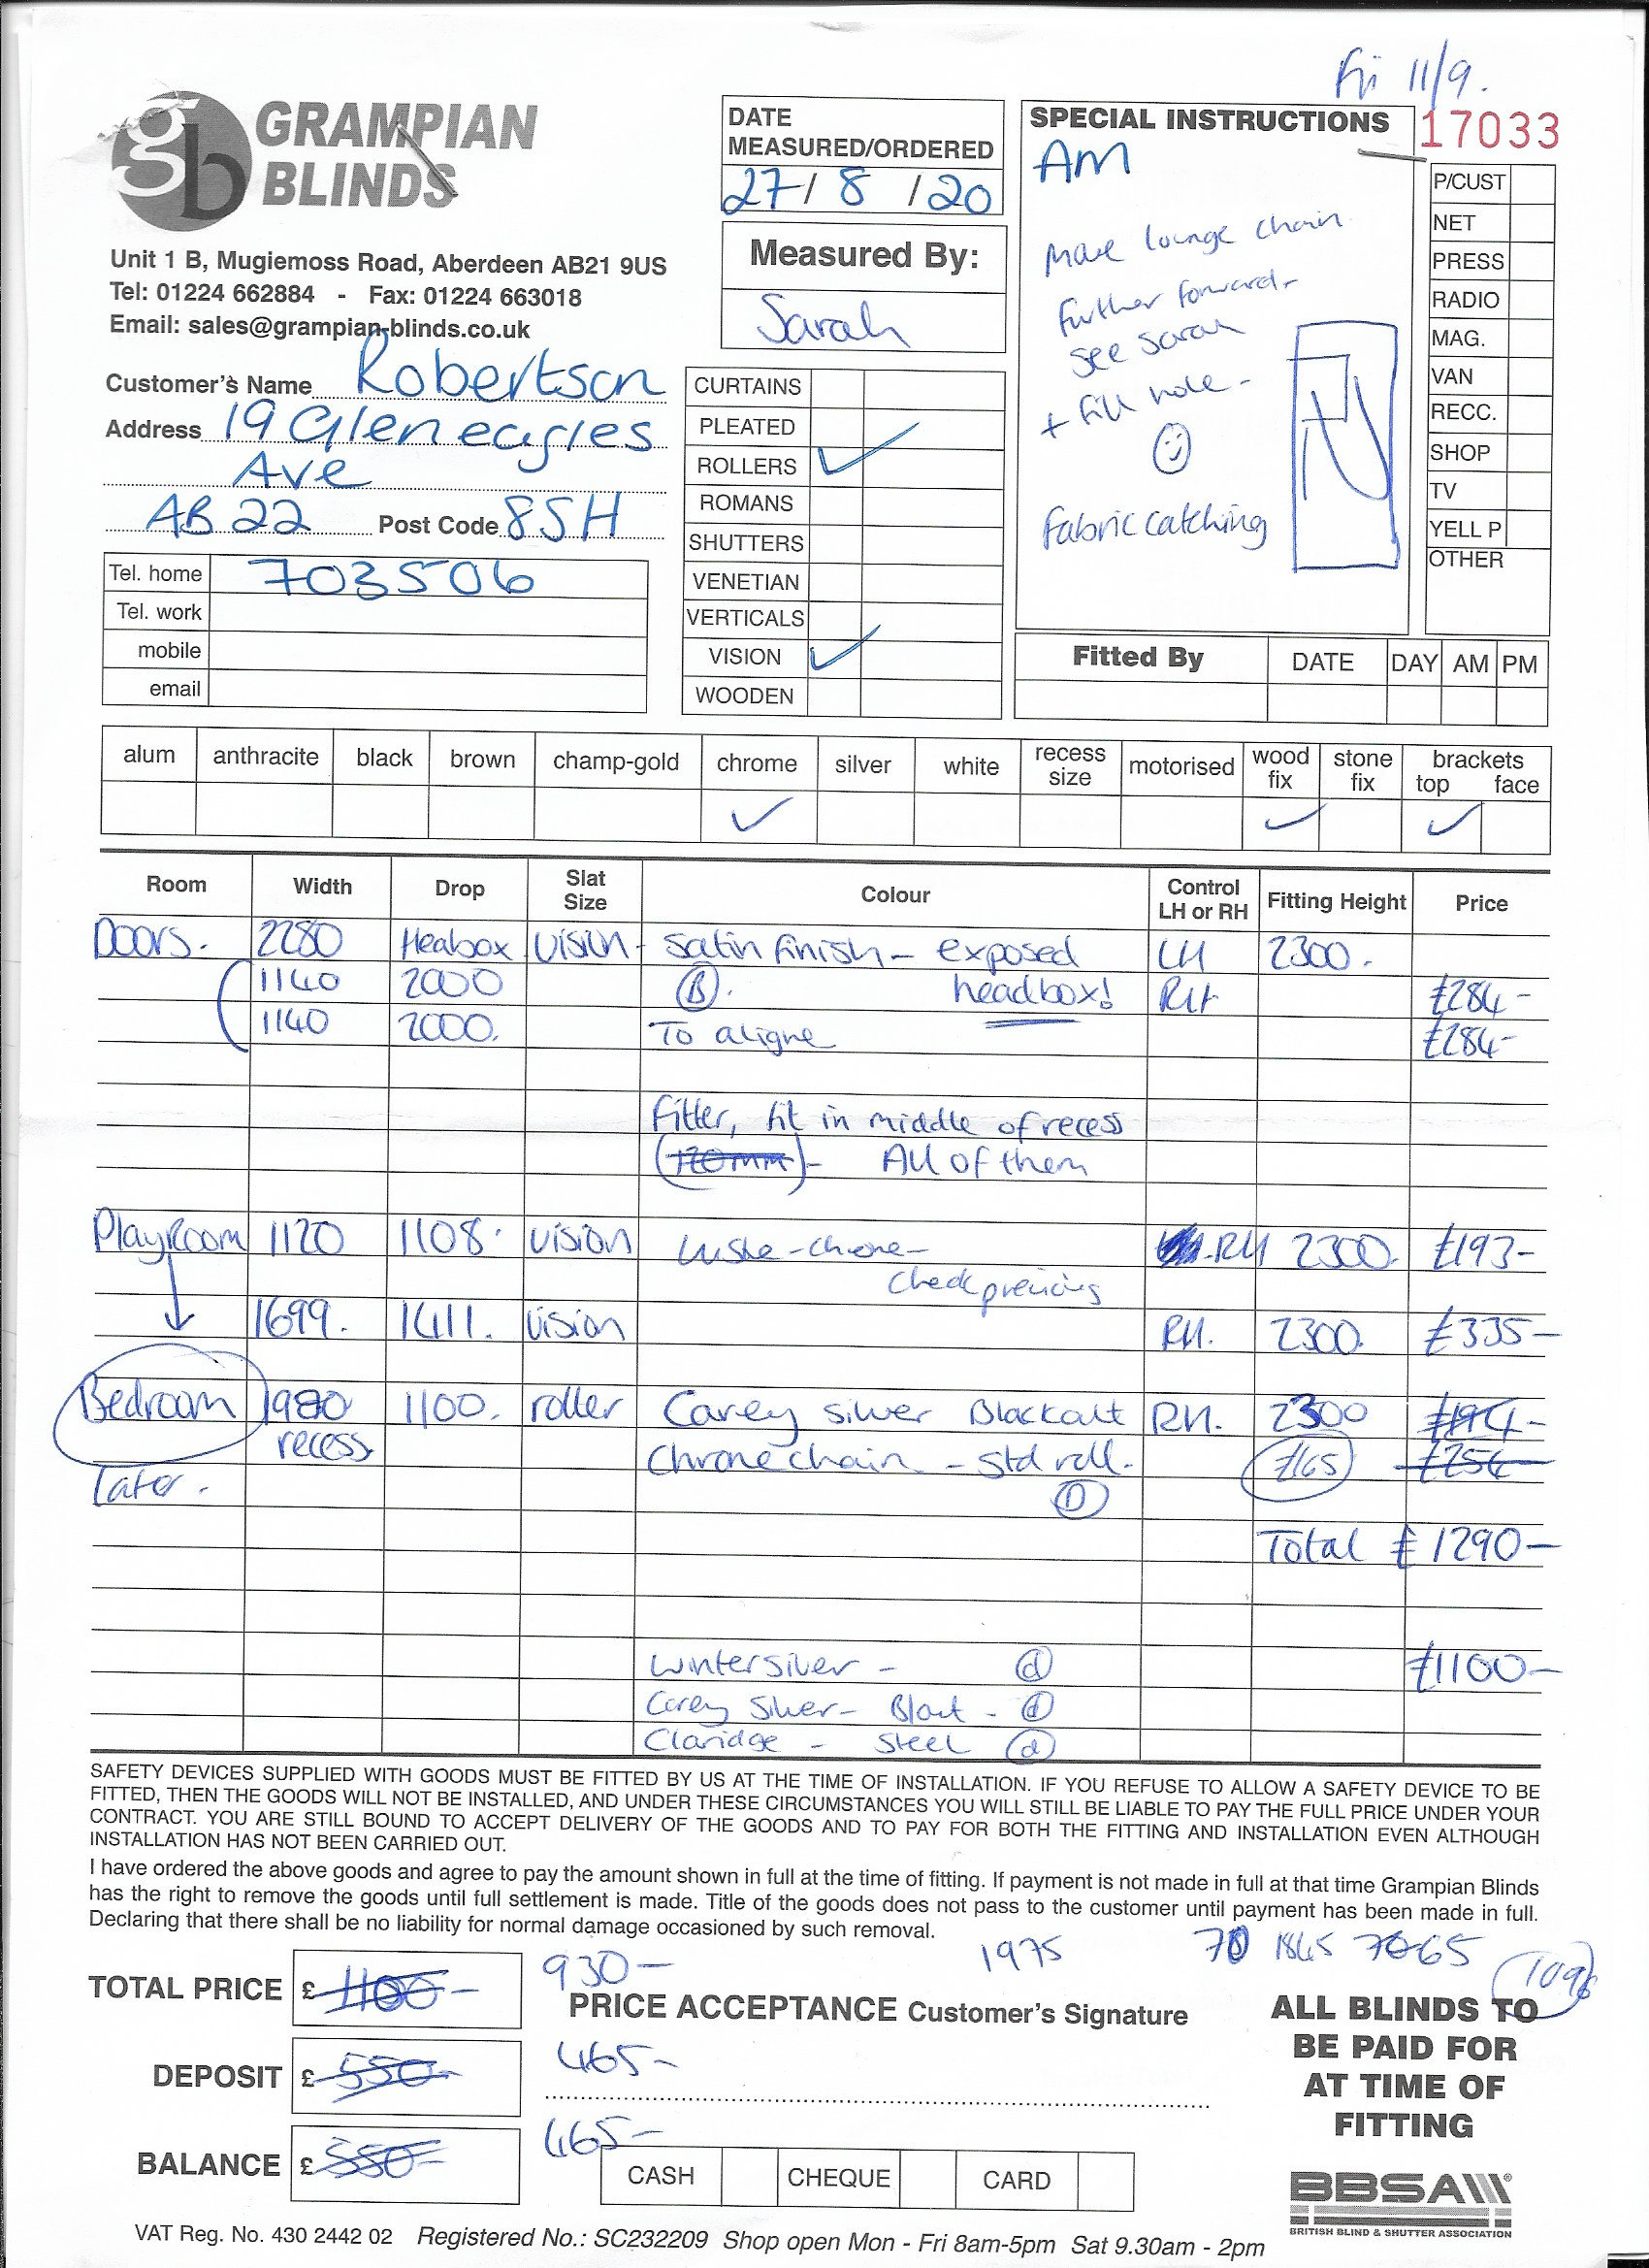 Fri 11/9.
GRAMPIAN
BLINDS
Unit 1 B, Mugiemoss Road, Aberdeen AB21 9US
Tel: 01224 662884 - Fax: 01224 663018
Email: sales@grampian-blinds.co.uk
Customer's Name Robertson
Address 19 Gleneagles
Ave
AB22 Post Code 8SH
Tel. home 703506
Tel. work
mobile
email
DATE
MEASURED/ORDERED
27/ 8 /20
Measured By:
Sarah
CURTAINS
PLEATED
ROLLERS ✓
ROMANS
SHUTTERS
VENETIAN
VERTICALS
VISION ✓
WOODEN
SPECIAL INSTRUCTIONS
AM
Move lounge chain
further forward-
see Sarah
+ fill hole -
Fabric catching
17033
P/CUST
NET
PRESS
RADIO
MAG.
VAN
RECC.
SHOP
TV
YELL P
OTHER
Fitted By DATE DAY AM PM
alum anthracite black brown champ-gold chrome silver white recess size motorised wood fix stone fix brackets top face
✓ ✓ ✓
Room Width Drop Slat Size Colour Control LH or RH Fitting Height Price
Doors. 2280 Heabox vision- Satin finish - exposed LH 2300.
1140 2000 B. headbox! RH £284-
1140 2000. To aligne £284-
Fitter, fit in middle of recess
(120mm)- All of them
Playroom 1120 1108. vision Luske-chrome- RH 2300. £193-
check previous
1699. 1411. vision RH. 2300. £335-
Bedroom 1980 1100. roller Carey silver Blackout RH. 2300 £194-
recess Chrome chain - Std roll. £165 £254
later. D
Total £1290-
Wintersilver - d £1100-
Carey Silver- Blout - d
Claridge - Steel d
SAFETY DEVICES SUPPLIED WITH GOODS MUST BE FITTED BY US AT THE TIME OF INSTALLATION. IF YOU REFUSE TO ALLOW A SAFETY DEVICE TO BE
FITTED, THEN THE GOODS WILL NOT BE INSTALLED, AND UNDER THESE CIRCUMSTANCES YOU WILL STILL BE LIABLE TO PAY THE FULL PRICE UNDER YOUR
CONTRACT. YOU ARE STILL BOUND TO ACCEPT DELIVERY OF THE GOODS AND TO PAY FOR BOTH THE FITTING AND INSTALLATION EVEN ALTHOUGH
INSTALLATION HAS NOT BEEN CARRIED OUT.
I have ordered the above goods and agree to pay the amount shown in full at the time of fitting. If payment is not made in full at that time Grampian Blinds
has the right to remove the goods until full settlement is made. Title of the goods does not pass to the customer until payment has been made in full.
Declaring that there shall be no liability for normal damage occasioned by such removal.
1975 70 1845 7065 1096
TOTAL PRICE £ 1100- 930-
PRICE ACCEPTANCE Customer's Signature
DEPOSIT £ 550- 465-
BALANCE £ 550- 465-
CASH CHEQUE CARD
ALL BLINDS TO
BE PAID FOR
AT TIME OF
FITTING
BBSA
BRITISH BLIND & SHUTTER ASSOCIATION
VAT Reg. No. 430 2442 02 Registered No.: SC232209 Shop open Mon - Fri 8am-5pm Sat 9.30am - 2pm